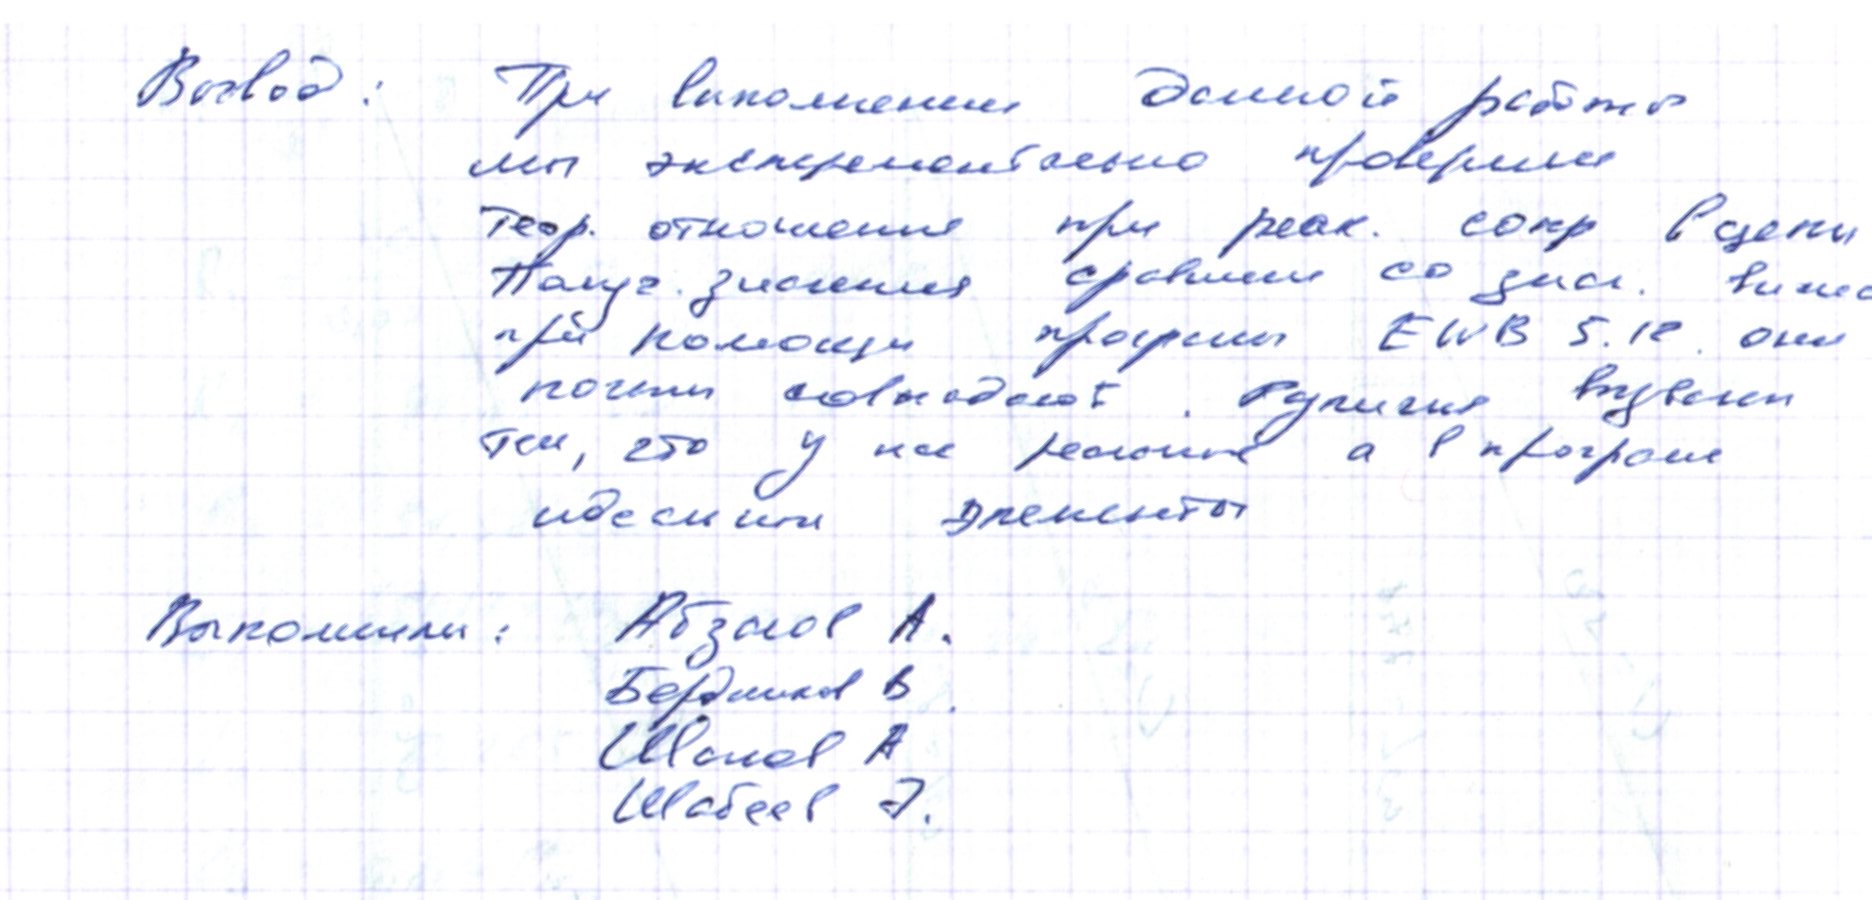 Вывод: При выполнении данной работы
мы эксперементально проверили
теор. отношения при реак. сопр в цепи
Получ. значения сравнили со знач.
при помощи програмы EWB 5.12. они
почти совпадают. Различия вызваны
тем, что у нас реальные а в програме
идеальные элементы
Выполнили: Абзалов А.
Бердников В.
Шапов А
Шабеев Э.